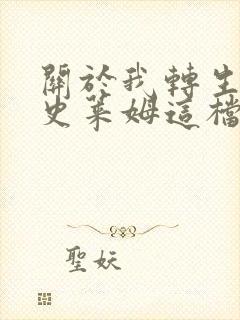 關於我轉生
史萊姆這檔
聖妖